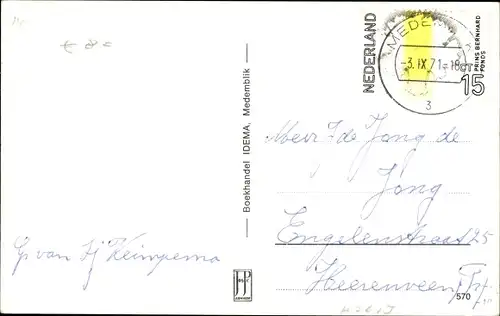 NEDERLAND
MEDE
-3.IX 71-18
3
CT
15
PRINS BERNHARD
FONDS
Boekhandel IDEMA, Medemblik
Mevr J de Jong de
Jong
Engelenstraat 25
Heerenveen (Frl.
Gr van Hj Kempema
JP
570